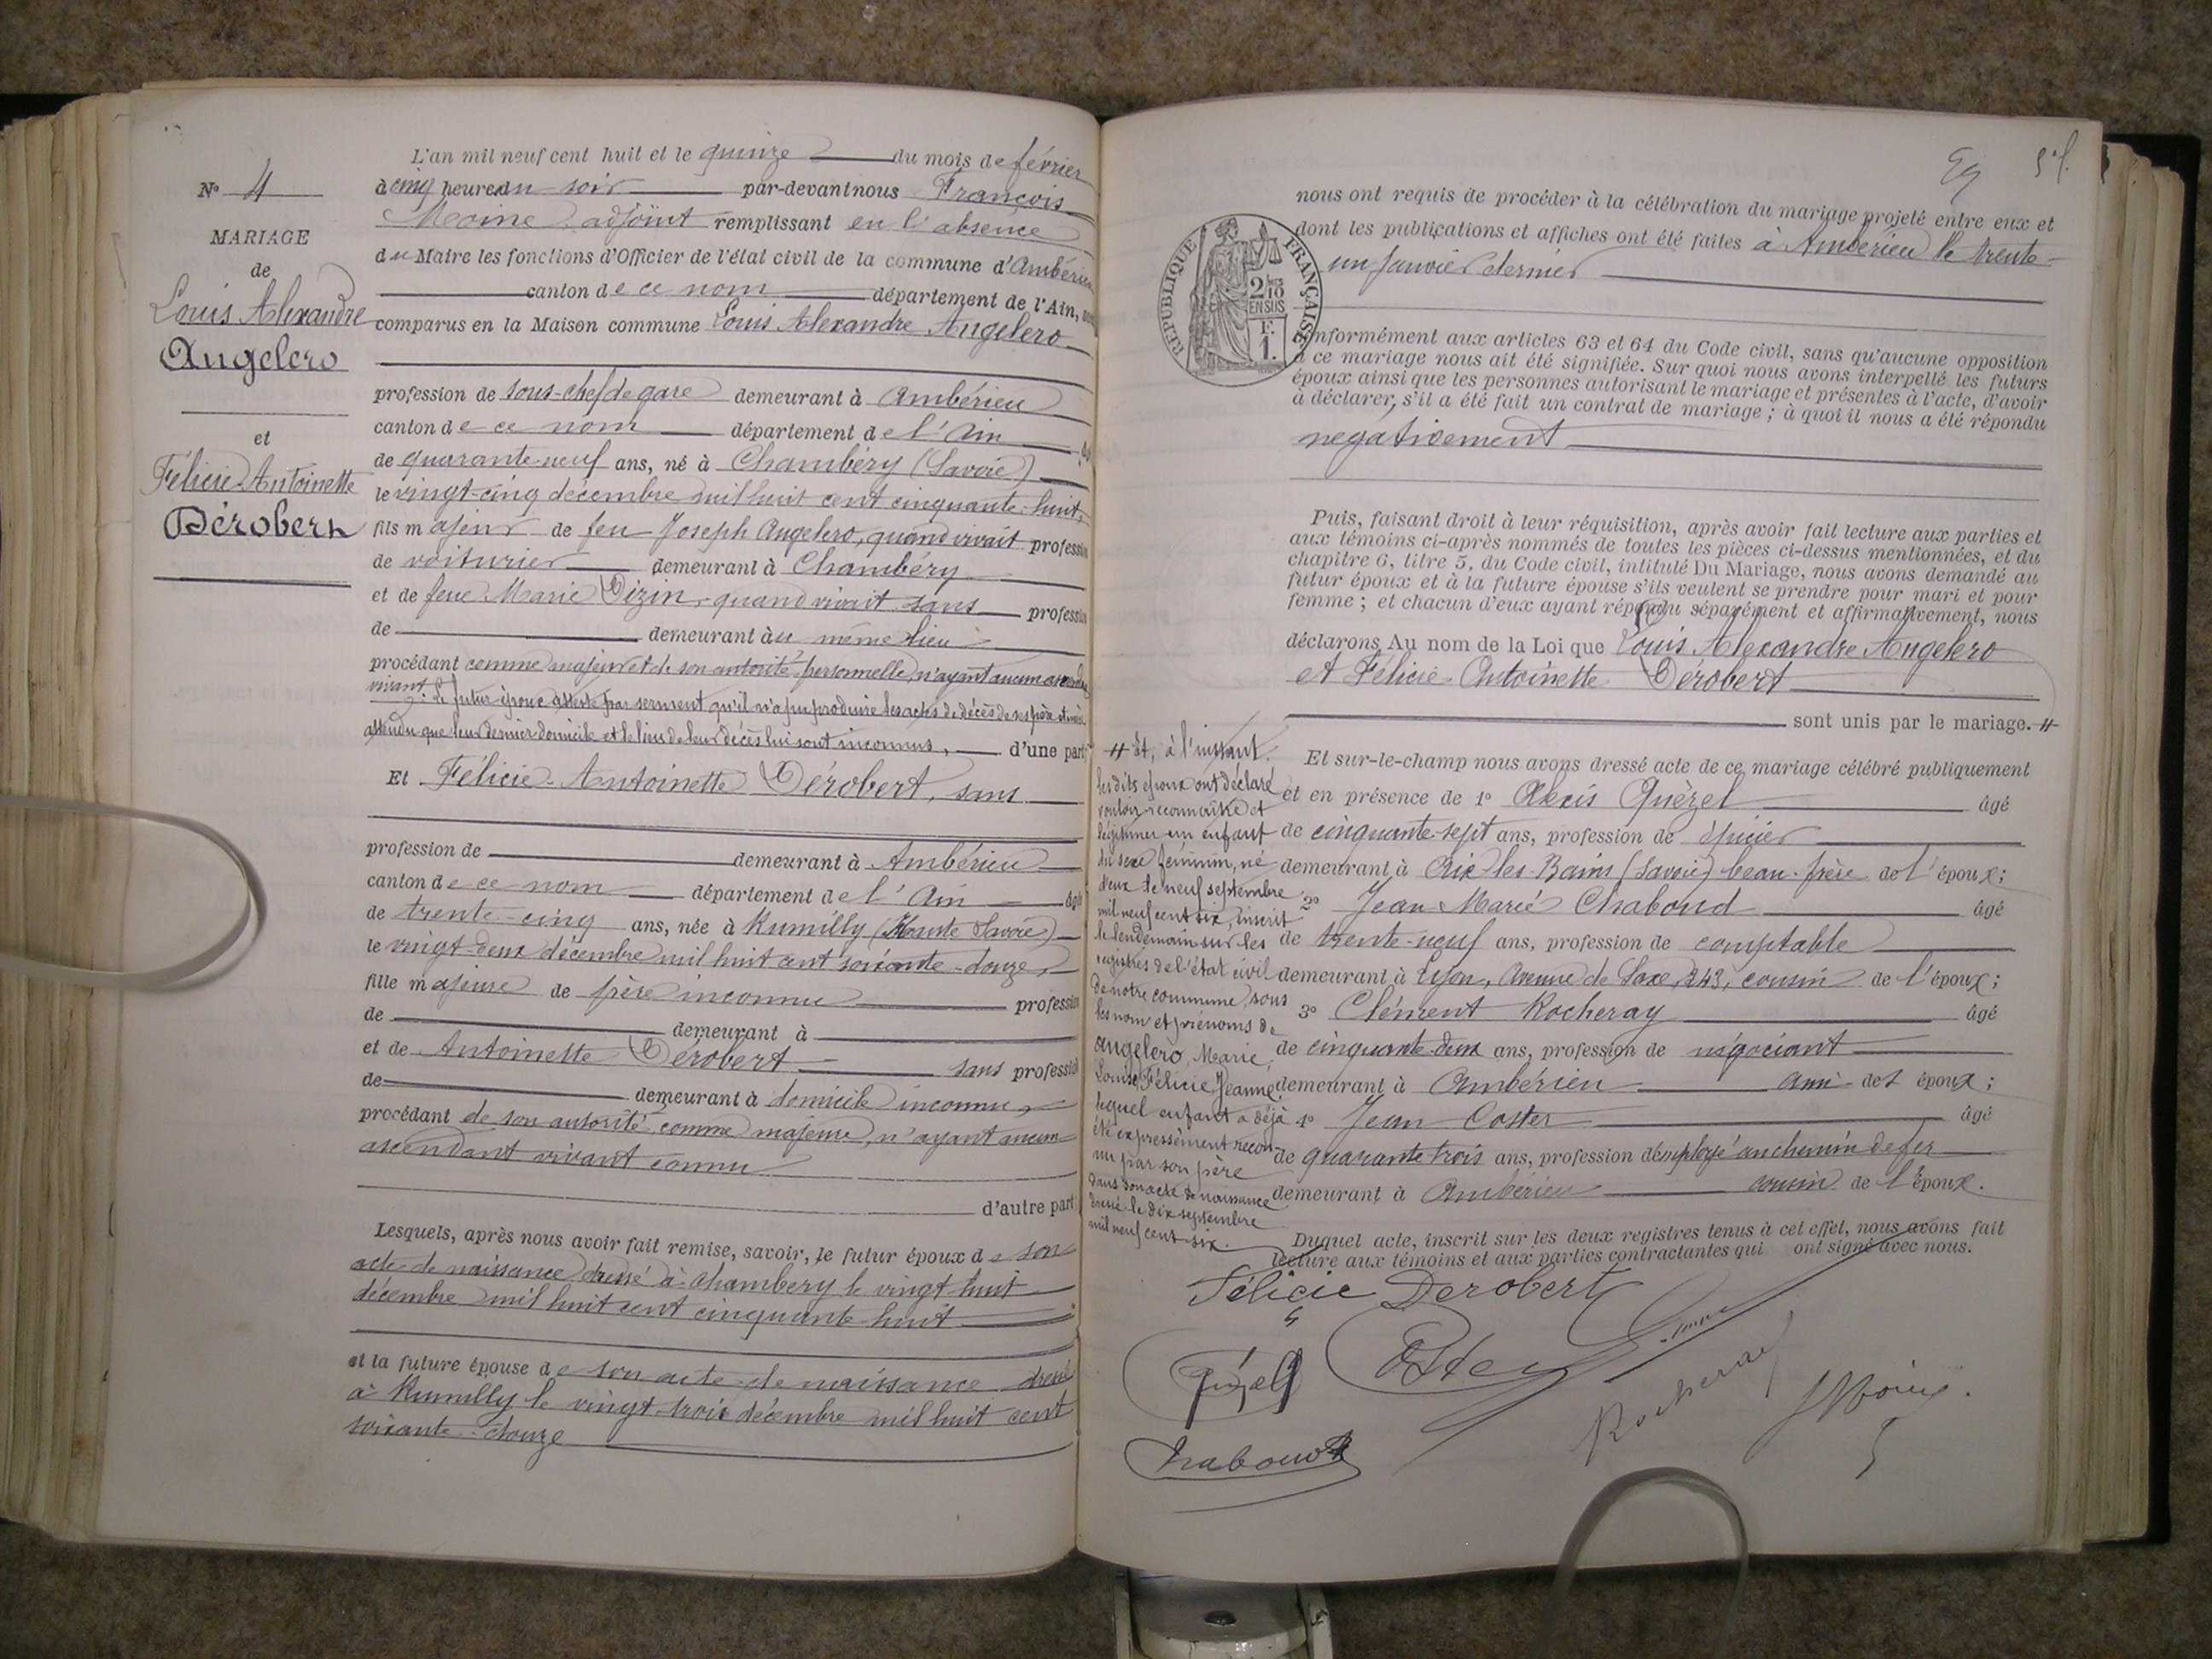 N° 4
MARIAGE
de
Louis Alexandre
Angelero
et
Félicie Antoinette
Dérobert
L'an mil neuf cent huit et le quinze du mois de février
à cinq heures du soir par-devant nous François
Moine adjoint remplissant en l'absence
du Maire les fonctions d'Officier de l'état civil de la commune d'Ambérieu
canton de ce nom département de l'Ain, sont
comparus en la Maison commune Louis Alexandre Angelero
profession de sous-chef de gare demeurant à Ambérieu
canton de ce nom département de l'Ain âgé
de quarante-neuf ans, né à Chambéry (Savoie)
le vingt-cinq décembre mil huit cent cinquante-huit,
fils majeur de feu Joseph Angelero, quand vivait profession
de voiturier demeurant à Chambéry
et de feue Marie Dizin, quand vivait sans profession
de demeurant au même lieu
procédant comme majeur et de son autorité personnelle, n'ayant aucun ascendant
vivant. Le futur époux atteste par serment qu'il n'a pu produire les actes de décès de ses père et mère
attendu que leur dernier domicile et le lieu de leur décès lui sont inconnus, d'une part
Et Félicie-Antoinette Dérobert, sans
profession de demeurant à Ambérieu
canton de ce nom département de l'Ain âgée
de trente-cinq ans, née à Rumilly (Haute Savoie)
le vingt-deux décembre mil huit cent soixante-douze,
fille majeure de père inconnu profession
de demeurant à
et de Antoinette Dérobert sans profession
de demeurant à domicile inconnu,
procédant de son autorité comme majeure, n'ayant aucun
ascendant vivant connu
d'autre part
Lesquels, après nous avoir fait remise, savoir, le futur époux de son
acte de naissance dressé à Chambéry le vingt-huit
décembre mil huit cent cinquante-huit
et la future épouse de son acte de naissance dressé
à Rumilly le vingt-trois décembre mil huit cent
soixante-douze
nous ont requis de procéder à la célébration du mariage projeté entre eux et
dont les publications et affiches ont été faites à Ambérieu le trente-
un janvier dernier
RÉPUBLIQUE FRANÇAISE
2/10
EN SUS
F.
1.
conformément aux articles 63 et 64 du Code civil, sans qu'aucune opposition
à ce mariage nous ait été signifiée. Sur quoi nous avons interpellé les futurs
époux ainsi que les personnes autorisant le mariage et présentes à l'acte, d'avoir
à déclarer, s'il a été fait un contrat de mariage ; à quoi il nous a été répondu
négativement
Puis, faisant droit à leur réquisition, après avoir fait lecture aux parties et
aux témoins ci-après nommés de toutes les pièces ci-dessus mentionnées, et du
chapitre 6, titre 5, du Code civil, intitulé Du Mariage, nous avons demandé au
futur époux et à la future épouse s'ils veulent se prendre pour mari et pour
femme ; et chacun d'eux ayant répondu séparément et affirmativement, nous
déclarons Au nom de la Loi que Louis Alexandre Angelero
et Félicie Antoinette Dérobert
sont unis par le mariage. #
# Et, à l'instant
lesdits époux ont déclaré
vouloir reconnaître et
légitimer un enfant
du sexe féminin, né
d'eux le neuf septembre
mil neuf cent six, inscrit
le lendemain sur les
registres de l'état civil
de notre commune, sous
les nom et prénoms de
Angelero, Marie,
Louise, Félicie, Jeanne.
lequel enfant a déjà
été expressément recon-
nu par son père
dans son acte de naissance
dressé le dix septembre
mil neuf cent six.
Et sur-le-champ nous avons dressé acte de ce mariage célébré publiquement
et en présence de 1° Alexis Quézel âgé
de cinquante-sept ans, profession de épicier
demeurant à Aix-les-Bains (Savoie) beau-frère de l'époux;
2° Jean-Marie Chaboud âgé
de trente-neuf ans, profession de comptable
demeurant à Lyon, Avenue de Saxe, 243, cousin de l'époux;
3° Clément Rocheray âgé
de cinquante-deux ans, profession de négociant
demeurant à Ambérieu ami des époux;
4° Jean Coster âgé
de quarante trois ans, profession d'employé au chemin de fer
demeurant à Ambérieu cousin de l'époux.
Duquel acte, inscrit sur les deux registres tenus à cet effet, nous avons fait
lecture aux témoins et aux parties contractantes qui ont signé avec nous.
Félicie Derobert
Quézel
Coster
Rocheray
F Moine
Chaboud